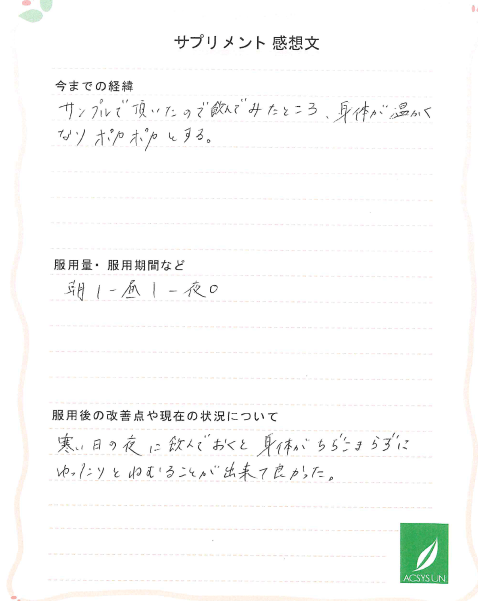 サプリメント 感想文
今までの経緯
サンプルで頂いたので飲んでみたところ、身体が温かく
なりポカポカとする。
服用量・服用期間など
朝1-昼1-夜0
服用後の改善点や現在の状況について
寒い日の夜に飲んでおくと身体がちぢこまらずに
ゆったりとねむることが出来て良かった。
ACSYSUN